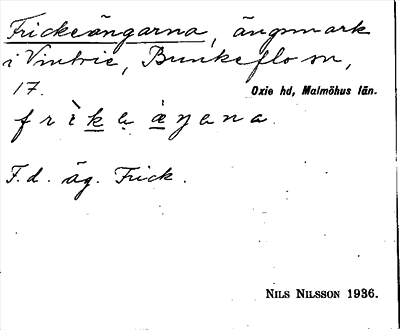 Frickeängarna, ängsmark
i Vintrie, Bunkeflo sn,
17. Oxie hd, Malmöhus län.
F. d. äg. Frick.
NILS NILSSON 1936.